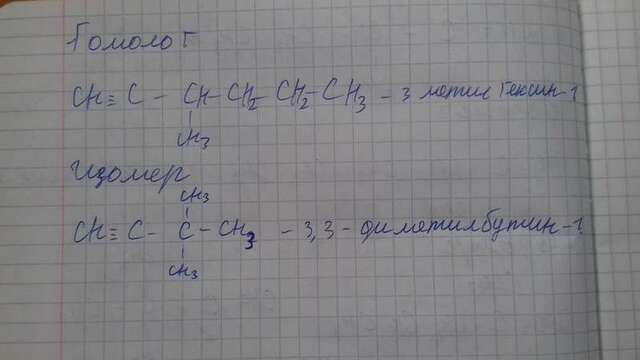 Гомолог
CH≡C - CH-CH₂ CH₂-CH₃ - 3 метил Гексин-1
CH₃
Изомер
CH₃
CH≡C- C-CH₃ - 3,3-диметилбутин-1
CH₃